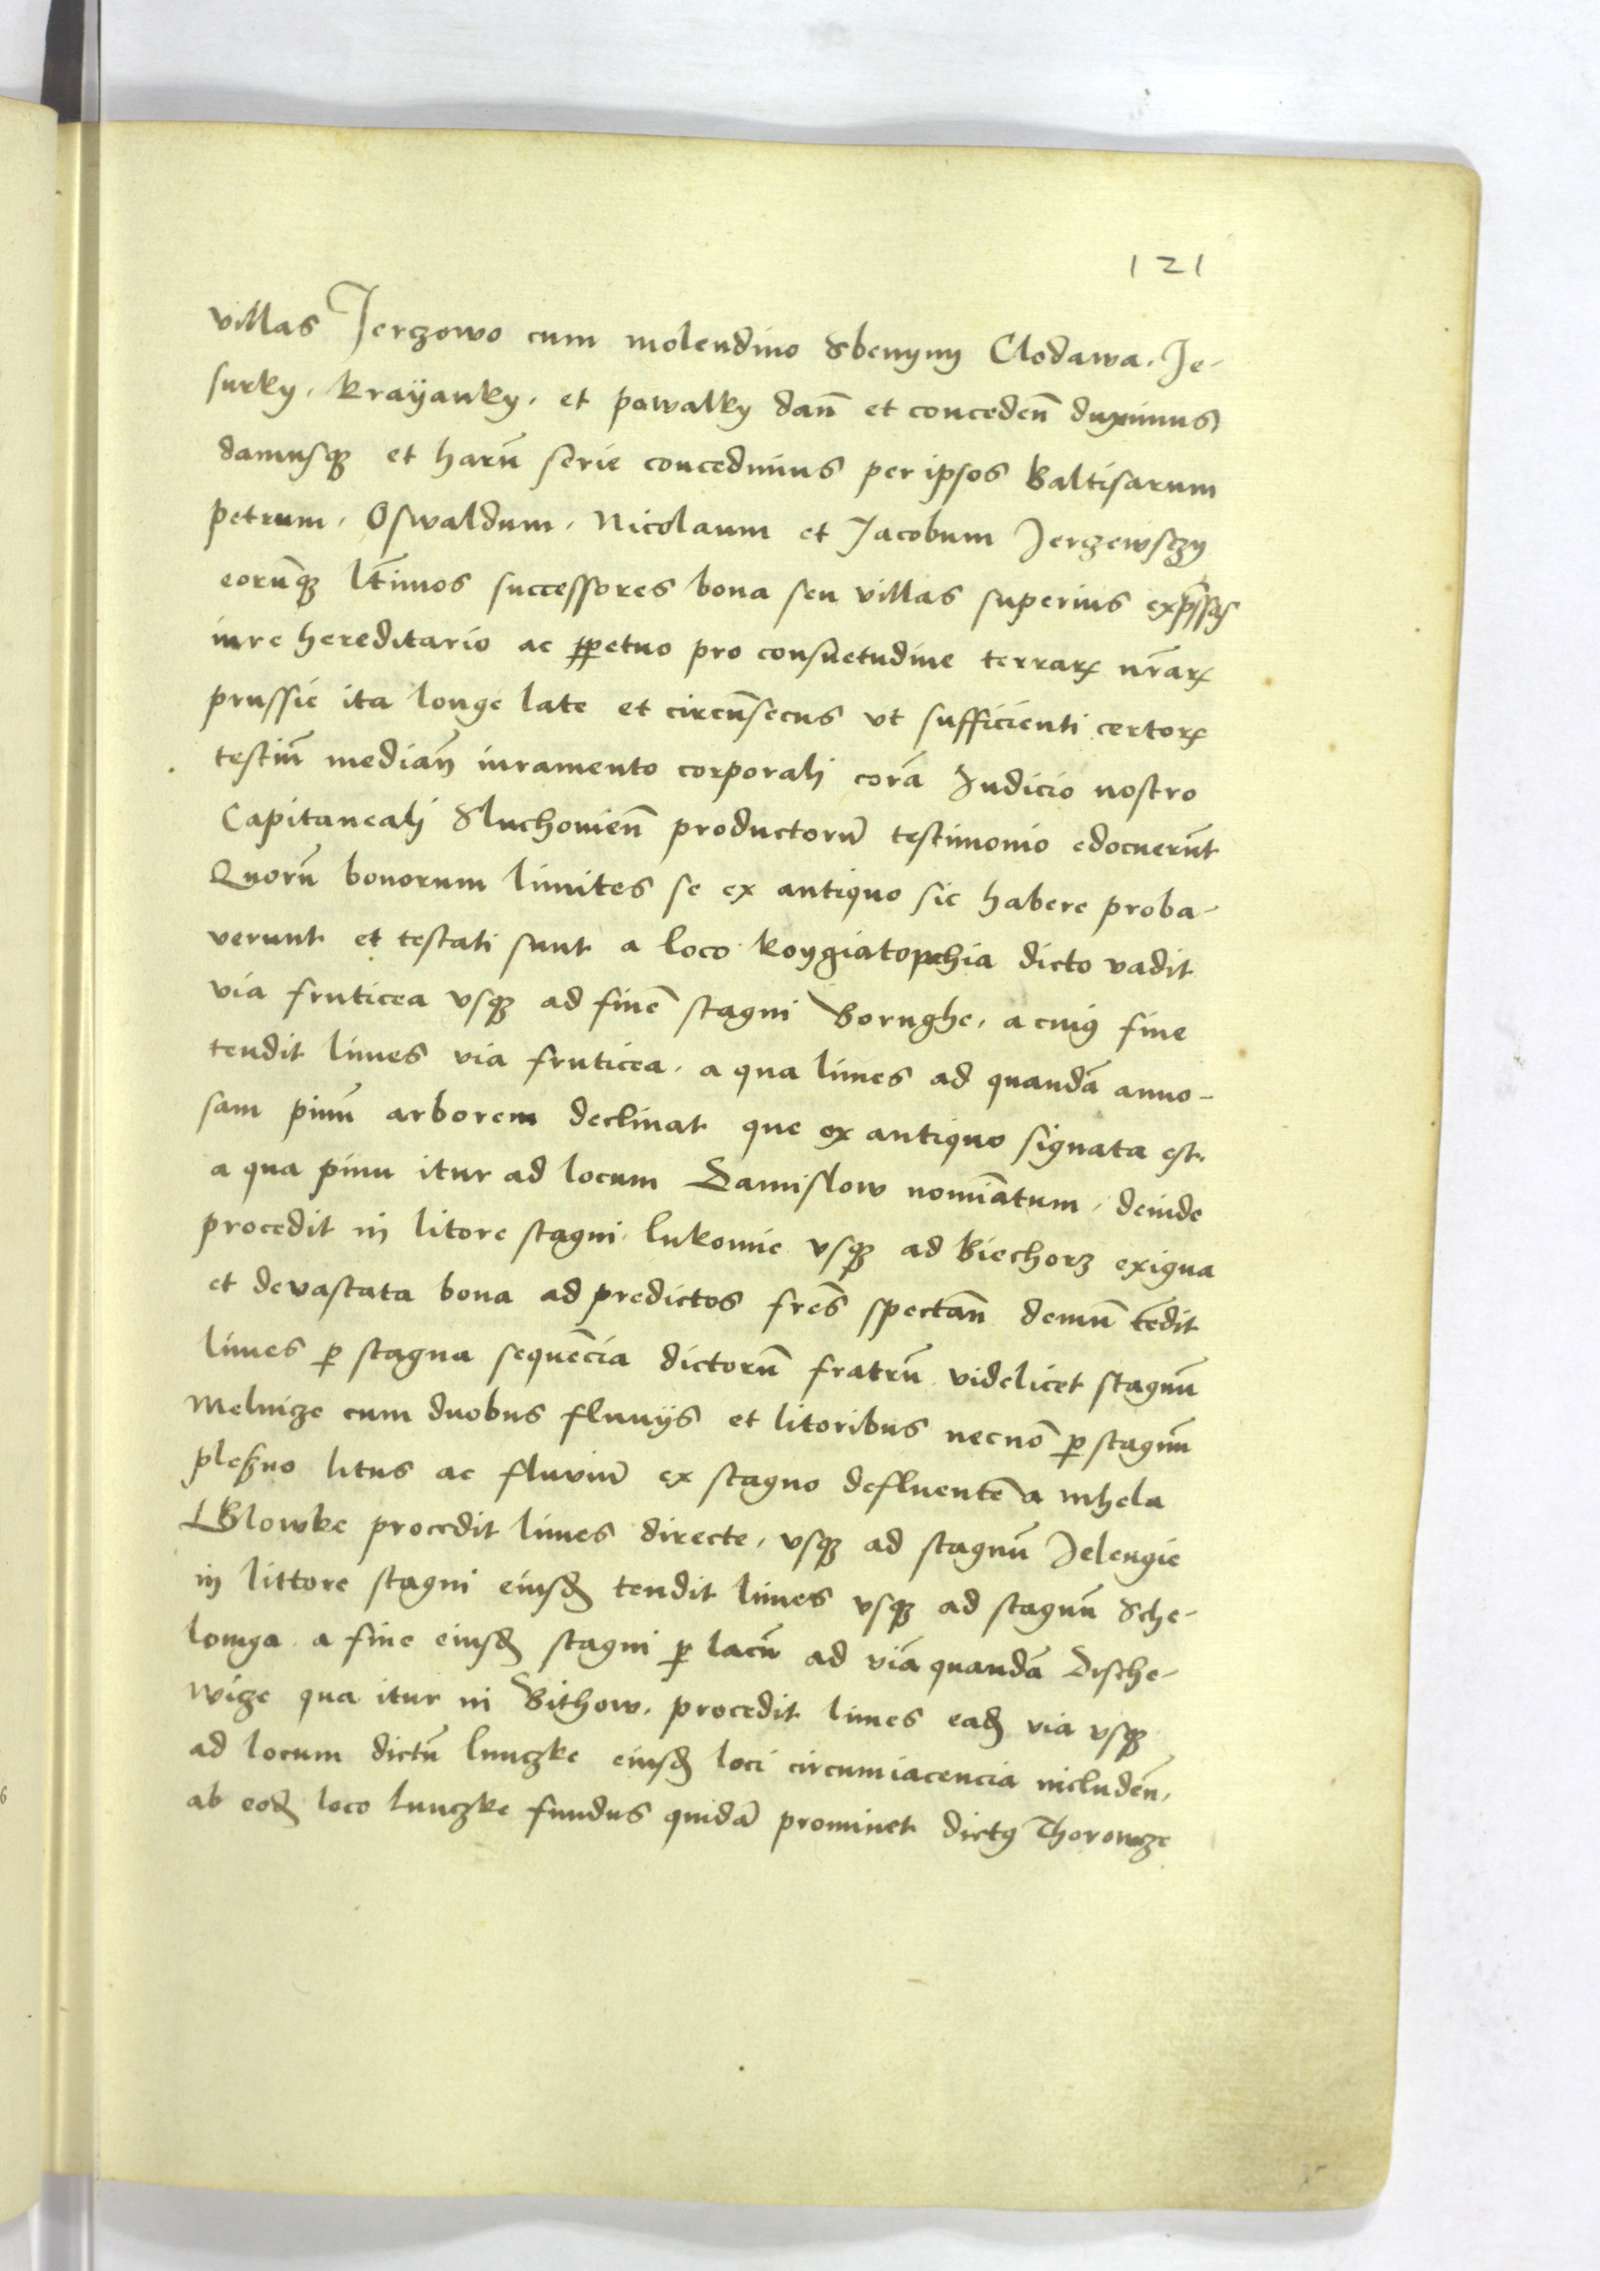 121
villas Jerczowo cum molendino Sbenyny Clodawa. Je-
surky. krayanky. et pawalky dan̄ et conceden̄ duximus
damusq; et harū serie concedimus per ipsos Baltisarum
petrum. Oswaldum. Nicolaum et Jacobum Jerczewsczy
eorūq; lt̄imos successores bona seu villas superius exp̄ssas
iure hereditario ac ꝑpetuo pro consuetudine terrarꝝ nr̄arꝝ
prussie ita longe late et circūsecus vt sufficienti certorꝝ
testiū median̄ iuramento corporali corā Judicio nostro
Capitaneali Sluchouien̄ productorū testimonio edocuerūt
Quorū bonorum limites se ex antiquo sic habere proba-
verunt et testati sunt a loco dicto vadit
via fruticea vsq; ad finē stagni Bornghe. a cuiꝰ fine
tendit limes via fruticea. a qua limes ad quandā anno-
sam pinū arborem declinat que ex antiquo signata est.
a qua pinu itur ad locum Damislow nomīatum. deinde
procedit in litore stagni lukomie vsq; ad Biechorz exigua
et devastata bona ad predictos frēs spectan̄ demū tēdit
limes ꝑ stagna sequēcia dictorū fratrū videlicet stagnū
Melnicze cum duobus fluuijs et litoribus necnō ꝑ stagnū
pleszno litus ac fluviū ex stagno defluentē a Mhela
Glowke procedit limes directe. vsq; ad stagnū Jelengie
in littore stagni eiusđ tendit limes vsq; ad stagnū Sche-
lomga a fine eiusđ stagni ꝑ lacū ad viā quandā Dische-
wicze qua itur in Bithow. procedit limes eađ via vsq;
ad locum dictū lunczke eiusđ loci circumiacencia includen̄.
ab eođ loco lunczke fundus quidā prominet dictꝰ Thorowcze